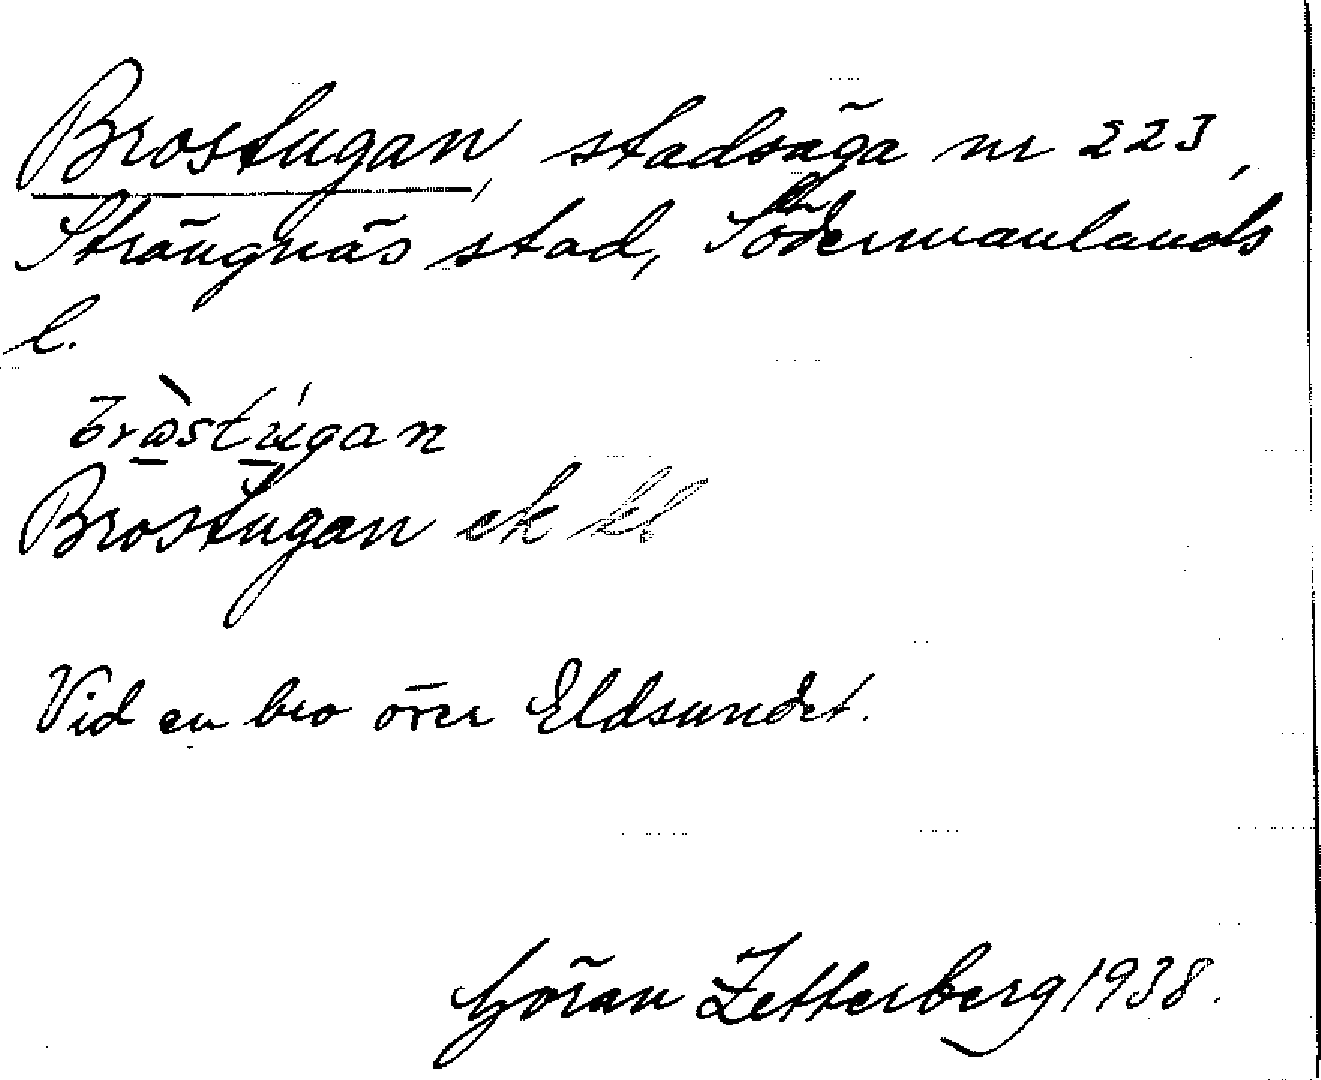 Brostugan, stadsäga nr 223,
Strängnäs stad, Södermanlands
l.
bròstúgan
Brostugan ek kl
Vid en bro över Eldsundet.
Göran Zetterberg 1938.